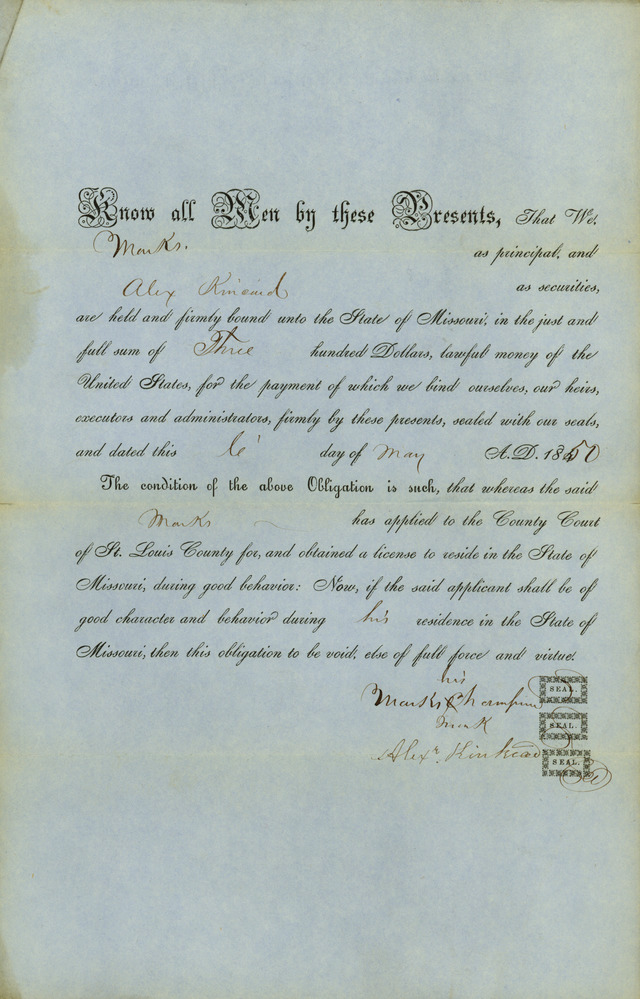 Know all Men by these Presents, That We,
Marks. as principal, and
Alex Kincaid as securities,
are held and firmly bound unto the State of Missouri, in the just and
full sum of Three hundred Dollars, lawful money of the
United States, for the payment of which we bind ourselves, our heirs,
executors and administrators, firmly by these presents, sealed with our seals,
and dated this day of May A.D. 1850
The condition of the above Obligation is such, that whereas the said
Marks has applied to the County Court
of St. Louis County for, and obtained a license to reside in the State of
Missouri, during good behavior: Now, if the said applicant shall be of
good character and behavior during his residence in the State of
Missouri, then this obligation to be void, else of full force and virtue.
his
Marks x SEAL.
mark SEAL.
Alexr. Kinkead SEAL.